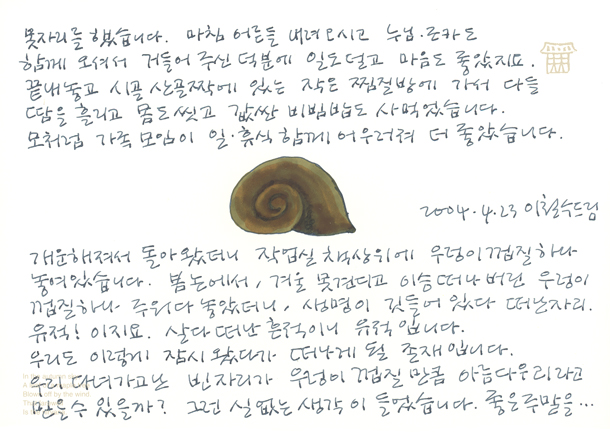 못자리를 했습니다. 마침 어른들 내려오시고 누님·조카도
함께 오셔서 거들어 주신 덕분에 일도 덜고 마음도 좋았지요.
끝내놓고 시골 산골짝에 있는 작은 찜질방에 가서 다들
땀을 흘리고 몸도 씻고 값싼 비빔밥도 사먹었습니다.
모처럼 가족 모임이 일·휴식 함께 어우러져 더 좋았습니다.
2004.4.23 이철수드림
개운해져서 돌아왔더니 작업실 책상위에 우렁이껍질 하나
놓여있습니다. 봄논에서, 겨울 못견디고 이승떠나버린 우렁이
껍질하나 주워다 놓았더니, 생명이 깃들어 있다 떠난자리.
유적! 이지요. 살다 떠난 흔적이니 유적입니다.
우리도 이렇게 잠시 왔다가 떠나게 될 존재입니다.
우리 다녀가고난 빈자리가 우렁이 껍질 만큼 아름다우리라고
믿을수 있을까? 그런 실없는 생각이 들었습니다. 좋은주말을...